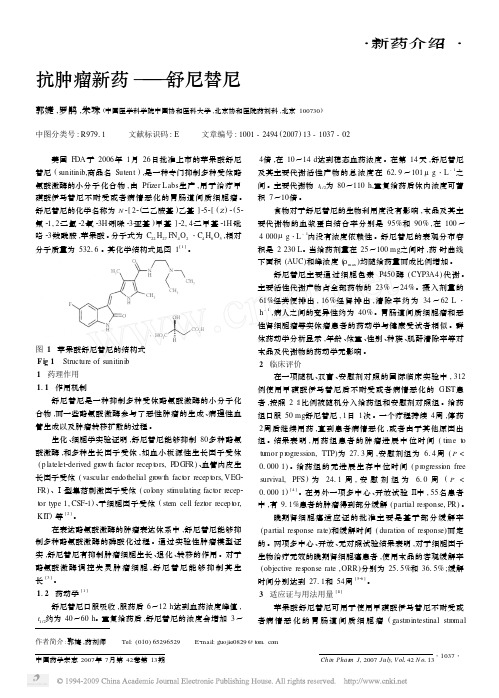 ·新药介绍·
抗肿瘤新药——舒尼替尼
郭婕,罗鹃,朱珠(中国医学科学院中国协和医科大学,北京协和医院药剂科,北京 100730)
中图分类号:R979.1 文献标识码:E 文章编号:1001-2494(2007)13-1037-02
美国 FDA于 2006年 1月 26日批准上市的苹果酸舒尼
替尼 (sunitinib,商品名 Sutent),是一种专门抑制多种受体酪
氨酸激酶的小分子化合物,由 Pfizer Labs生产,用于治疗甲
磺酸伊马替尼不耐受或者病情恶化的胃肠道间质细胞瘤。
舒尼替尼的化学名称为 N-[2-(二乙胺基)乙基]-5-[(z)-(5-
氟-1,2二氢-2-氧-3H-吲哚-3亚基)甲基]-2,4二甲基-1H-吡
咯-3羧酰胺,苹果酸。分子式为 C22H27FN4O2·C4H6O5,相对
分子质量为 532.6。其化学结构式见图 1[1]。
图 1 苹果酸舒尼替尼的结构式
Fig 1 Structure of sunitinib
1 药理作用
1.1 作用机制
舒尼替尼是一种抑制多种受体酪氨酸激酶的小分子化
合物,而一些酪氨酸激酶参与了恶性肿瘤的生成、病理性血
管生成以及肿瘤转移扩散的过程。
生化、细胞学实验证明,舒尼替尼能够抑制 80多种酪氨
酸激酶,和多种生长因子受体,如血小板源性生长因子受体
(platelet-derived growth factor receptors, PDGFR)、血管内皮生
长因子受体 (vascular endothelial growth factor receptors, VEG-
FR)、Ⅰ型集药刺激因子受体 (colony stimulating factor recep-
tor type 1, CSF-1)、干细胞因子受体 (stem cell feztor receptor,
KIT)等[2]。
在表达酪氨酸激酶的肿瘤表达体系中,舒尼替尼能够抑
制多种酪氨酸激酶的磷酸化过程。通过实验性肿瘤模型证
实,舒尼替尼有抑制肿瘤细胞生长、退化、转移的作用。对于
酪氨酸激酶调控失灵肿瘤细胞,舒尼替尼能够抑制其生
长[3]。
1.2 药动学[1]
舒尼替尼口服吸收,服药后 6~12 h达到血药浓度峰值,
t1/2约为 40~60 h。重复给药后,舒尼替尼的浓度会增加 3~
4倍,在 10~14 d达到稳态血药浓度。在第 14天,舒尼替尼
及其主要代谢活性产物的总浓度在 62.9~101μg·L-1之
间。主要代谢物 t1/2为 80~110 h,重复给药后体内浓度可蓄
积 7~10倍。
食物对于舒尼替尼的生物利用度没有影响,本品及其主
要代谢物的血浆蛋白结合率分别是 95%和 90%,在 100~
4 000μg·L-1内没有浓度依赖性。舒尼替尼的表观分布容
积是 2 230 L。当给药剂量在 25~100 mg之间时,药-时曲线
下面积 (AUC)和峰浓度 (ρmax)均随给药量而成比例增加。
舒尼替尼主要通过细胞色素 P450酶 (CYP3A4)代谢。
主要活性代谢产物占全部药物的 23%~24%。摄入剂量的
61%经粪便排出,16%经肾排出,清除率约为 34~62 L·
h-1,病人之间的变异性约为 40%。胃肠道间质细胞瘤和恶
性肾细胞瘤等实体瘤患者的药动学与健康受试者相似。群
体药动学分析显示,年龄、体重、性别、种族、肌酐清除率等对
本品及代谢物的药动学无影响。
2 临床评价
在一项随机、双盲、安慰剂对照的国际临床实验中,312
例使用甲磺酸伊马替尼后不耐受或者病情恶化的 GIST患
者,按照 2∶1比例被随机分入给药组和安慰剂对照组。给药
组口服 50 mg舒尼替尼,1日 1次。一个疗程持续 4周,停药
2周后继续用药,直到患者病情恶化,或者由于其他原因出
组。结果表明,用药组患者的肿瘤进展中位时间 (time to
tumor progression, TTP)为 27.3周,安慰剂组为 6.4周 (P<
0.000 1)。给药组的无进展生存中位时间 (progression free
survival, PFS)为 24.1周,安慰剂组为 6.0周 (P<
0.000 1)[4]。在另外一项多中心、开放试验Ⅱ中,55名患者
中,有 9.1%患者的肿瘤得到部分缓解 (partial response, PR)。
晚期肾细胞癌适应证的批准主要是基于部分缓解率
(partial response rate)和缓解时间 (duration of response)而定
的。两项多中心、开放、无对照试验结果表明,对于细胞因子
生物治疗无效的晚期肾细胞癌患者,使用本品的客观缓解率
(objective response rate, ORR)分别为 25.5%和 36.5%;缓解
时间分别达到 27.1和 54周[5-6]。
3 适应证与用法用量[6]
苹果酸舒尼替尼可用于使用甲磺酸伊马替尼不耐受或
者病情恶化的胃肠道间质细胞瘤 (gastrointestinal stromal
作者简介:郭婕,药剂师 Tel:(010)65296529 E-mail:guojie0829@tom.com
中国药学杂志 2007年 7月第 42卷第 13期
Chin Pharm J, 2007 July, Vol. 42 No. 13 ·1037·
© 1994-2009 China Academic Journal Electronic Publishing House. All rights reserved. http://www.cnki.net